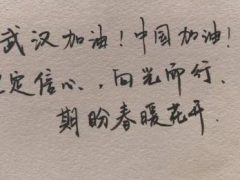 武汉加油！中国加油！
定信心，向光而行、
期盼春暖花开.